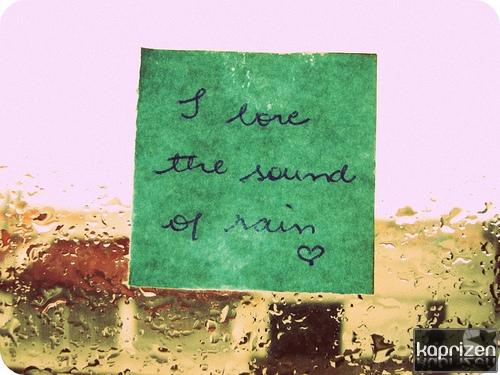 I love
the sound
of rain
♡
kaprizen